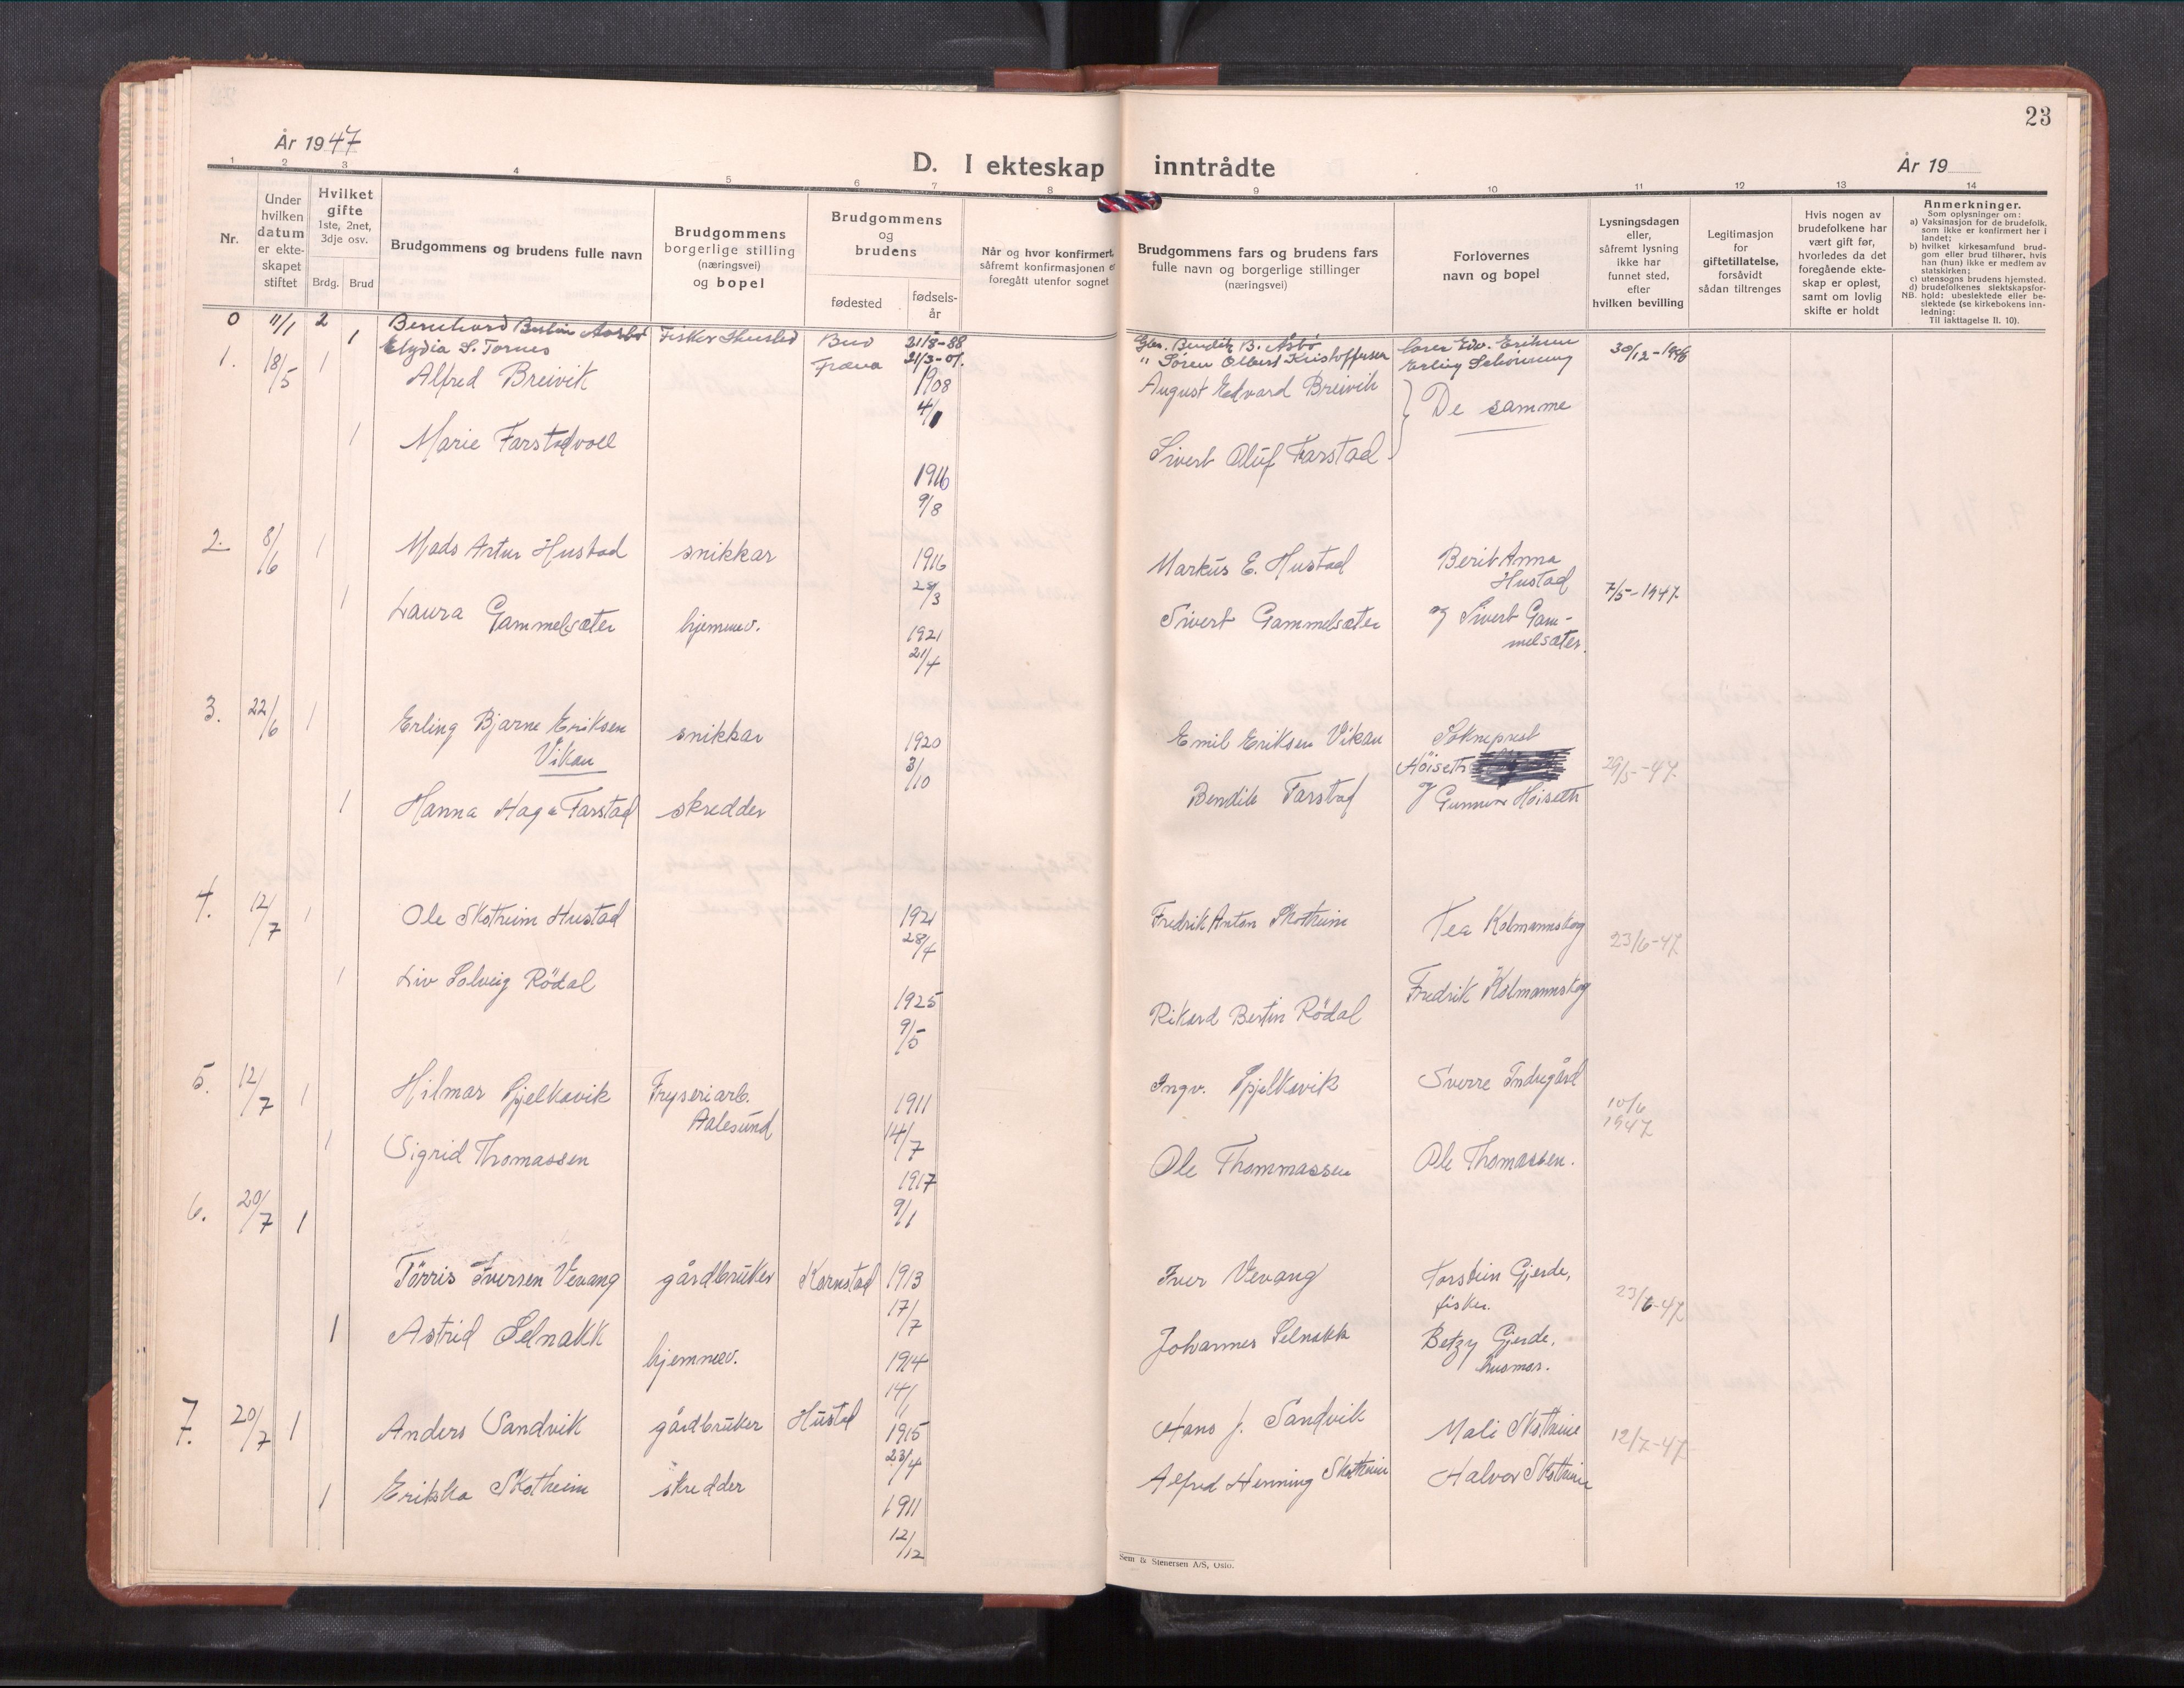 23
År 1947
D. I ekteskap inntrådte
År 19
1 2 3 4 5 6 7 8 9 10 11 12 13 14
Nr.
Under hvilken datum er ekte-skapet stiftet
Hvilket gifte 1ste, 2net, 3dje osv.
Brdg. Brud
Brudgommens og brudens fulle navn
Brudgommens borgerlige stilling (næringsvei) og bopel
Brudgommens og brudens
fødested
fødsels-år
Når og hvor konfirmert, såfremt konfirmasjonen er foregått utenfor sognet
Brudgommens fars og brudens fars fulle navn og borgerlige stillinger (næringsvei)
Forlovernes navn og bopel
Lysningsdagen eller, såfremt lysning ikke har funnet sted, efter hvilken bevilling
Legitimasjon for giftetillatelse, forsåvidt sådan tiltrenges
Hvis nogen av brudefolkene har vært gift før, hvorledes da det foregående ekte-skap er opløst, samt om lovlig skifte er holdt
Anmerkninger.
Som oplysninger om:
a) Vaksinasjon for de brudefolk, som ikke er konfirmert her i landet;
b) hvilket kirkesamfund brud-gom eller brud tilhører, hvis han (hun) ikke er medlem av statskirken;
c) utensogns brudens hjemsted.
d) brudefolkenes slektskapsfor-hold: ubeslektede eller be-slektede (se kirkebokens inn-ledning:
NB.
Til iakttagelse II. 10).
0 11/1 2 Bernhard Aasbø Fisker Hustad Bud 21/8-88 Bendik B. Åsbø Edv. Eriksen 30/12-1946
1 Elydia S. Tornes Fræna 21/3-07. " Søren Elbert Kristoffersen Erling
1. 18/5 1 Alfred Breivik 1908 4/1 August Edvard Breivik De samme
1 Marie Farstadvoll 1916 9/8 Sivert Oluf Farstad
2. 8/6 1 Mads Artur Hustad snikkar 1916 28/3 Markus E. Hustad Berit Anna Hustad 7/5-1947
1 Laura Gammelsæter hjemmev. 1921 21/4 Sivert Gammelsæter og Sivert Gam-
melsæter.
3. 22/6 1 Erling Bjarne Eriksen snikkar 1920 3/10 Emil Eriksen Vikan Sokneprest
Vikan Höiseth 29/5-47.
1 Hanna Haga Farstad skredder Bendik Farstad og Gunnvor Höiseth
4. 12/7 1 Ole Skotheim Hustad 1921 28/4 Fredrik Anton Skotheim Tea Kolmannskog 23/6-47.
1 Liv Solveig Rödal 1925 9/5 Rikard Bertin Rödal Fredrik Kolmannskog
5. 12/7 1 Hilmar Spjelkavik Fryseriarb. 1911 14/7 Ingv. Spjelkavik Sverre Indregård 10/6
Aalesund 1947
1 Sigrid Thomassen 1917 9/1 Ole Thommassen Ole Thomassen.
6. 20/7 1
Törris Iversen Vevang gårdbruker Kornstad 1913 17/7 Iver Vevang Torstein Gjerde, 23/6-47.
fisker.
1 Astrid Selnakk hjemmev. 1914 14/1 Johannes Selnakk Betzy Gjerde,
husmor.
7. 20/7 1 Anders Sandvik gårdbruker Hustad 1915 23/4 Hans J. Sandvik Mali Skotheim 12/7-47.
7.
1 Erikka Skotheim skredder 1911 12/12 Alfred Henning Skotheim Halvor Skotheim
Sem & Stenersen A/S, Oslo.